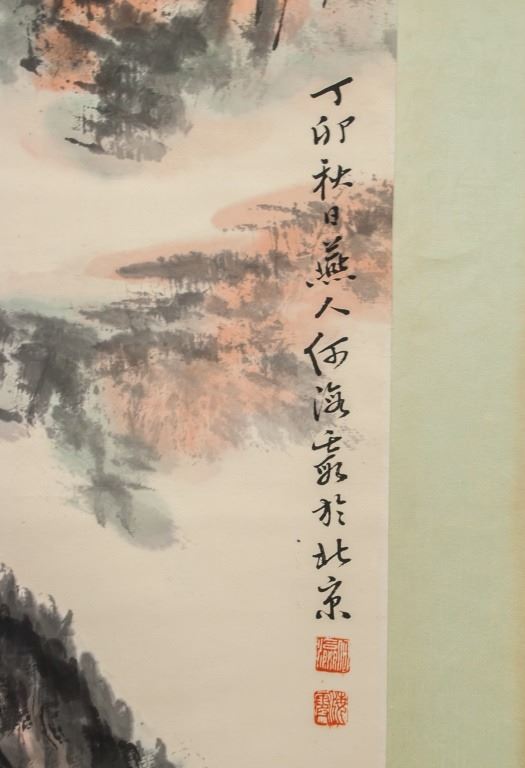 丁卯秋日燕人何海霞於北京